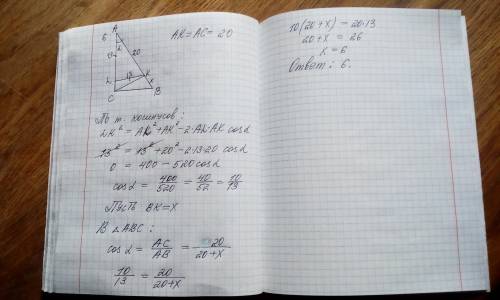 A
6.
α
13
20
L
13
K
x
C
B
AK = AC = 20
По т. косинусов:
LK² = AL² + AK² − 2·AL·AK cosα
13² = 13² + 20² − 2·13·20 cosα
0 = 400 − 520 cosα
cosα = 400/520 = 40/52 = 10/13
Пусть BK = x
В △ABC:
cosα = AC/AB = 20/(20+x)
10/13 = 20/(20+x)
10(20+x) = 20·13
20+x = 26
x = 6
Ответ: 6.